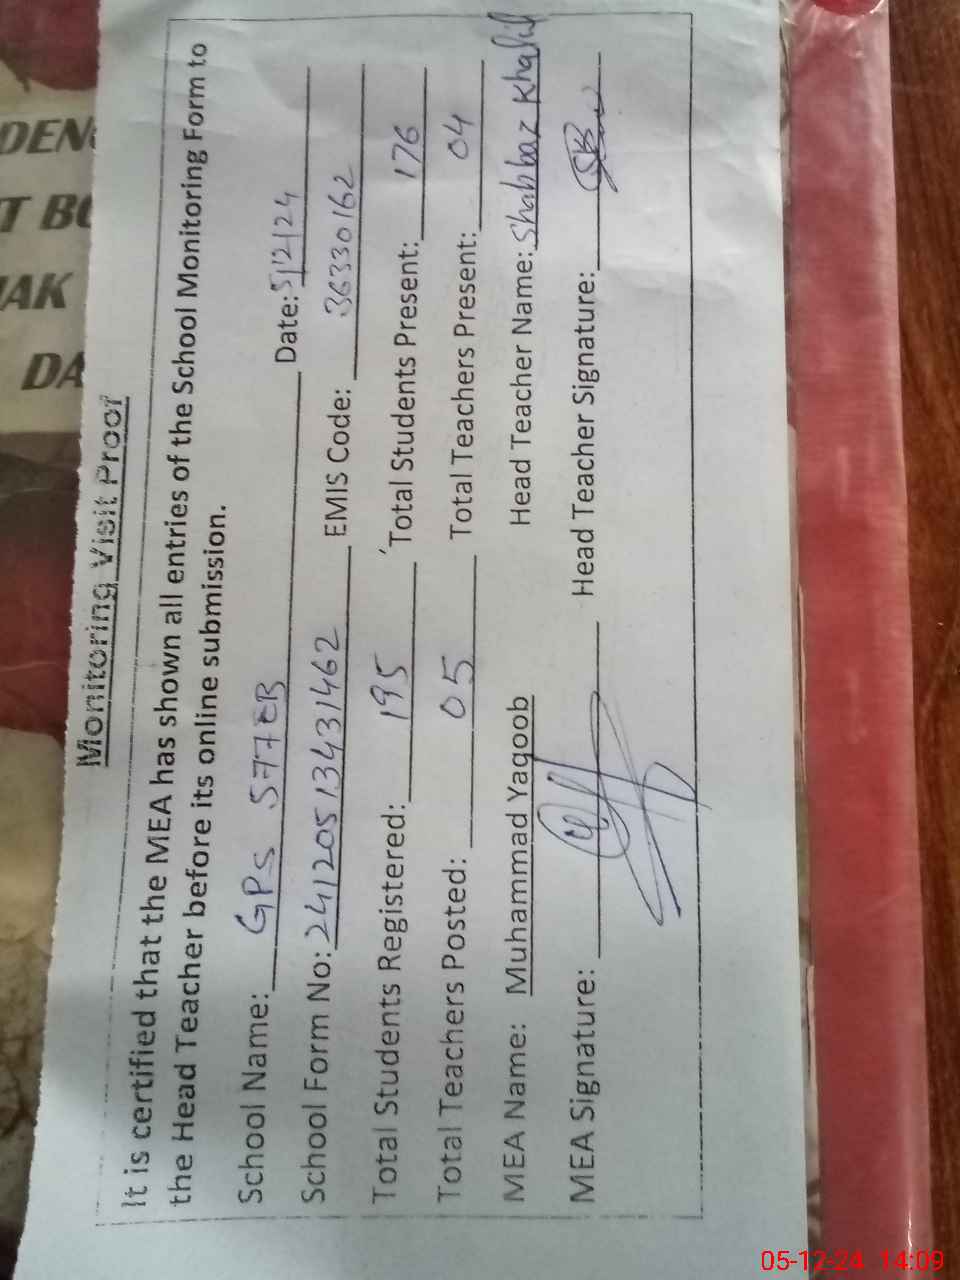 Monitoring Visit Proof
It is certified that the MEA has shown all entries of the School Monitoring Form to
the Head Teacher before its online submission.
School Name: GPS 577EB Date: 5/12/24
School Form No: 24120513431462 EMIS Code: 36330162
Total Students Registered: 195 Total Students Present: 176
Total Teachers Posted: 05 Total Teachers Present: 04
MEA Name: Muhammad Yaqoob Head Teacher Name: Shahbaz Khalil
MEA Signature: Head Teacher Signature:
DEN
T BO
AK
DA
05-12-24 14:09